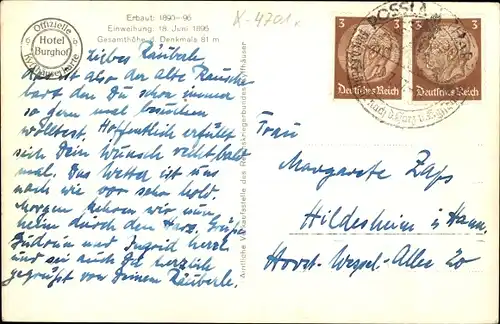 Erbaut: 1890–96
Einweihung: 18. Juni 1896
Gesamthöhe d. Denkmals 81 m
Offizielle
Hotel
Burghof
X-4701r
3 3
Deutsches Reich Deutsches Reich
Liebes Räuberle,
ist also der alte
bart den Du schon immer
so gern mal besuchen
wolltest. Hoffentlich erfüllt
sich Dein Wunsch recht bald
mal. Das Wetter ist uns
nach wie vor sehr hold.
Morgen kehren wir nun
heim durch den Harz. Grüße
Gudrun und Ingrid herzl.
und sei auch Du herzlich
gegrüßt von Deinem Räuberle.
Amtliche Verkaufsstelle des Reichskriegerbundes Kyffhäuser
Frau
Margarete Zaps
Hildesheim i. Hann.
Horst-Wessel-Allee 20